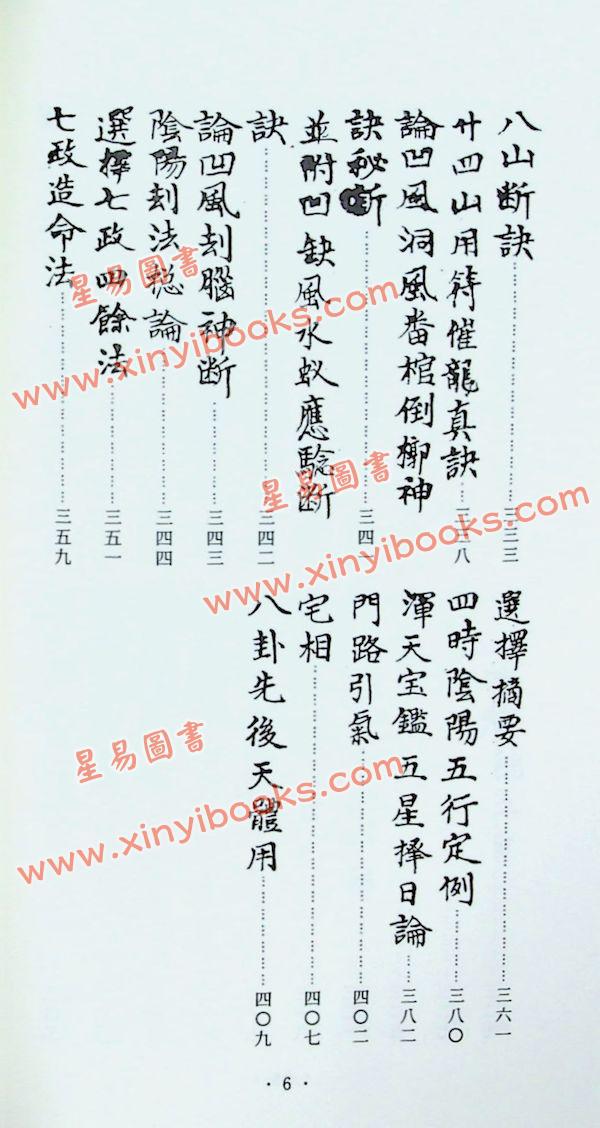 八山断訣……三三三
廿四山用符催龍真訣……三三八
論凹風洞風畨棺倒槨神
訣秘断……三四一
並附凹缺風水蚁應騐断
訣……三四二
論凹風刦腦神断……三四三
陰陽刦法總論……三四四
選擇七政四餘法……三五一
七政造命法……三五九
選擇摘要……三六一
四時陰陽五行定例……三八〇
渾天宝鑑五星擇日論……三八二
門路引氣……四〇二
宅相……四〇七
八卦先後天體用……四〇九
星易圖書
www.xinyibooks.com
星易圖書
www.xinyibooks.com
星易圖書
www.xinyibooks.com
· 6 ·